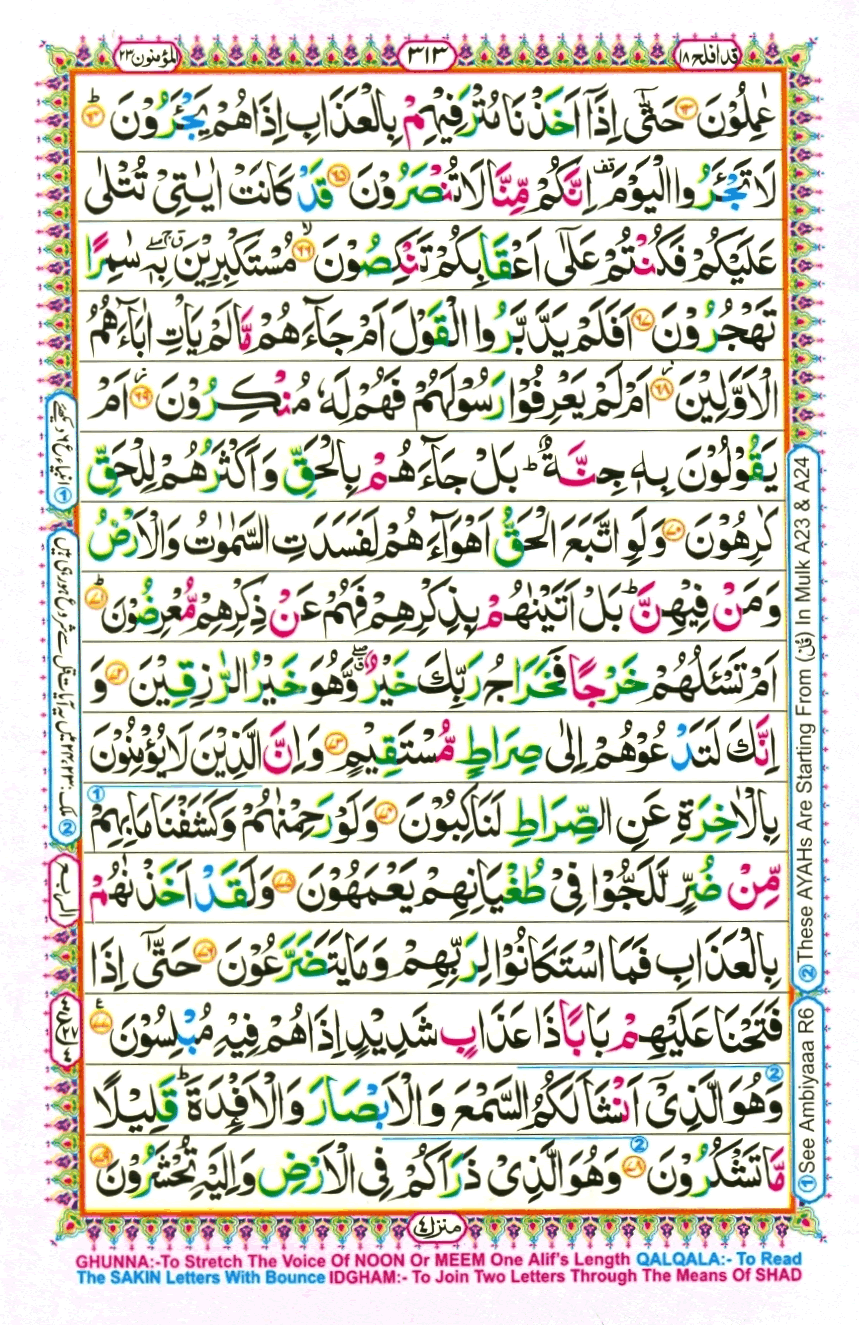 قد افلح ١٨
٣١٣
المؤمنون ٢٣
عٰمِلُوْنَ ﴿٦٣﴾ حَتّٰٓى اِذَاۤ اَخَذْنَا مُتْرَفِيْهِمْ بِالْعَذَابِ اِذَا هُمْ يَجْـَٔرُوْنَ ؕ﴿٦٤﴾
لَا تَجْـَٔرُوا الْيَوْمَ ۟ اِنَّكُمْ مِّنَّا لَا تُنْصَرُوْنَ ﴿٦٥﴾ قَدْ كَانَتْ اٰيٰتِىْ تُتْلٰى
عَلَيْكُمْ فَكُنْتُمْ عَلٰٓى اَعْقَابِكُمْ تَنْكِصُوْنَ ۙ﴿٦٦﴾ مُسْتَكْبِرِيْنَ بِهٖ سٰمِرًا
تَهْجُرُوْنَ ﴿٦٧﴾ اَفَلَمْ يَدَّبَّرُوا الْقَوْلَ اَمْ جَآءَهُمْ مَّا لَمْ يَاْتِ اٰبَآءَهُمُ
الْاَوَّلِيْنَ ؗ﴿٦٨﴾ اَمْ لَمْ يَعْرِفُوْا رَسُوْلَهُمْ فَهُمْ لَهٗ مُنْكِرُوْنَ ؗ﴿٦٩﴾ اَمْ
يَقُوْلُوْنَ بِهٖ جِنَّةٌ ؕ بَلْ جَآءَهُمْ بِالْحَقِّ وَاَكْثَرُهُمْ لِلْحَقِّ
كٰرِهُوْنَ ﴿٧٠﴾ وَلَوِ اتَّبَعَ الْحَقُّ اَهْوَآءَهُمْ لَفَسَدَتِ السَّمٰوٰتُ وَالْاَرْضُ
وَمَنْ فِيْهِنَّ ؕ بَلْ اَتَيْنٰهُمْ بِذِكْرِهِمْ فَهُمْ عَنْ ذِكْرِهِمْ مُّعْرِضُوْنَ ؕ﴿٧١﴾
اَمْ تَسْـَٔلُهُمْ خَرْجًا فَخَرَاجُ رَبِّكَ خَيْرٌ ۖ وَّهُوَ خَيْرُ الرّٰزِقِيْنَ ﴿٧٢﴾ وَ
اِنَّكَ لَتَدْعُوْهُمْ اِلٰى صِرَاطٍ مُّسْتَقِيْمٍ ﴿٧٣﴾ وَاِنَّ الَّذِيْنَ لَا يُؤْمِنُوْنَ
بِالْاٰخِرَةِ عَنِ الصِّرَاطِ لَنٰكِبُوْنَ ﴿٧٤﴾ وَلَوْ رَحِمْنٰهُمْ وَكَشَفْنَا مَا بِهِمْ
مِّنْ ضُرٍّ لَّلَجُّوْا فِىْ طُغْيَانِهِمْ يَعْمَهُوْنَ ﴿٧٥﴾ وَلَقَدْ اَخَذْنٰهُمْ
بِالْعَذَابِ فَمَا اسْتَكَانُوْا لِرَبِّهِمْ وَمَا يَتَضَرَّعُوْنَ ﴿٧٦﴾ حَتّٰٓى اِذَا
فَتَحْنَا عَلَيْهِمْ بَابًا ذَا عَذَابٍ شَدِيْدٍ اِذَا هُمْ فِيْهِ مُبْلِسُوْنَ ﴿٧٧﴾
وَهُوَ الَّذِىْۤ اَنْشَاَ لَكُمُ السَّمْعَ وَالْاَبْصَارَ وَالْاَفْـِٕدَةَ ؕ قَلِيْلًا
مَّا تَشْكُرُوْنَ ﴿٧٨﴾ وَهُوَ الَّذِىْ ذَرَاَكُمْ فِى الْاَرْضِ وَاِلَيْهِ تُحْشَرُوْنَ ﴿٧٩﴾
② These AYAHs Are Starting From (قُلْ) In Mulk A23 & A24
① See Ambiyaaa R6
الربع
منزل ٤
GHUNNA:-To Stretch The Voice Of NOON Or MEEM One Alif's Length QALQALA:- To Read
The SAKIN Letters With Bounce IDGHAM:- To Join Two Letters Through The Means Of SHAD